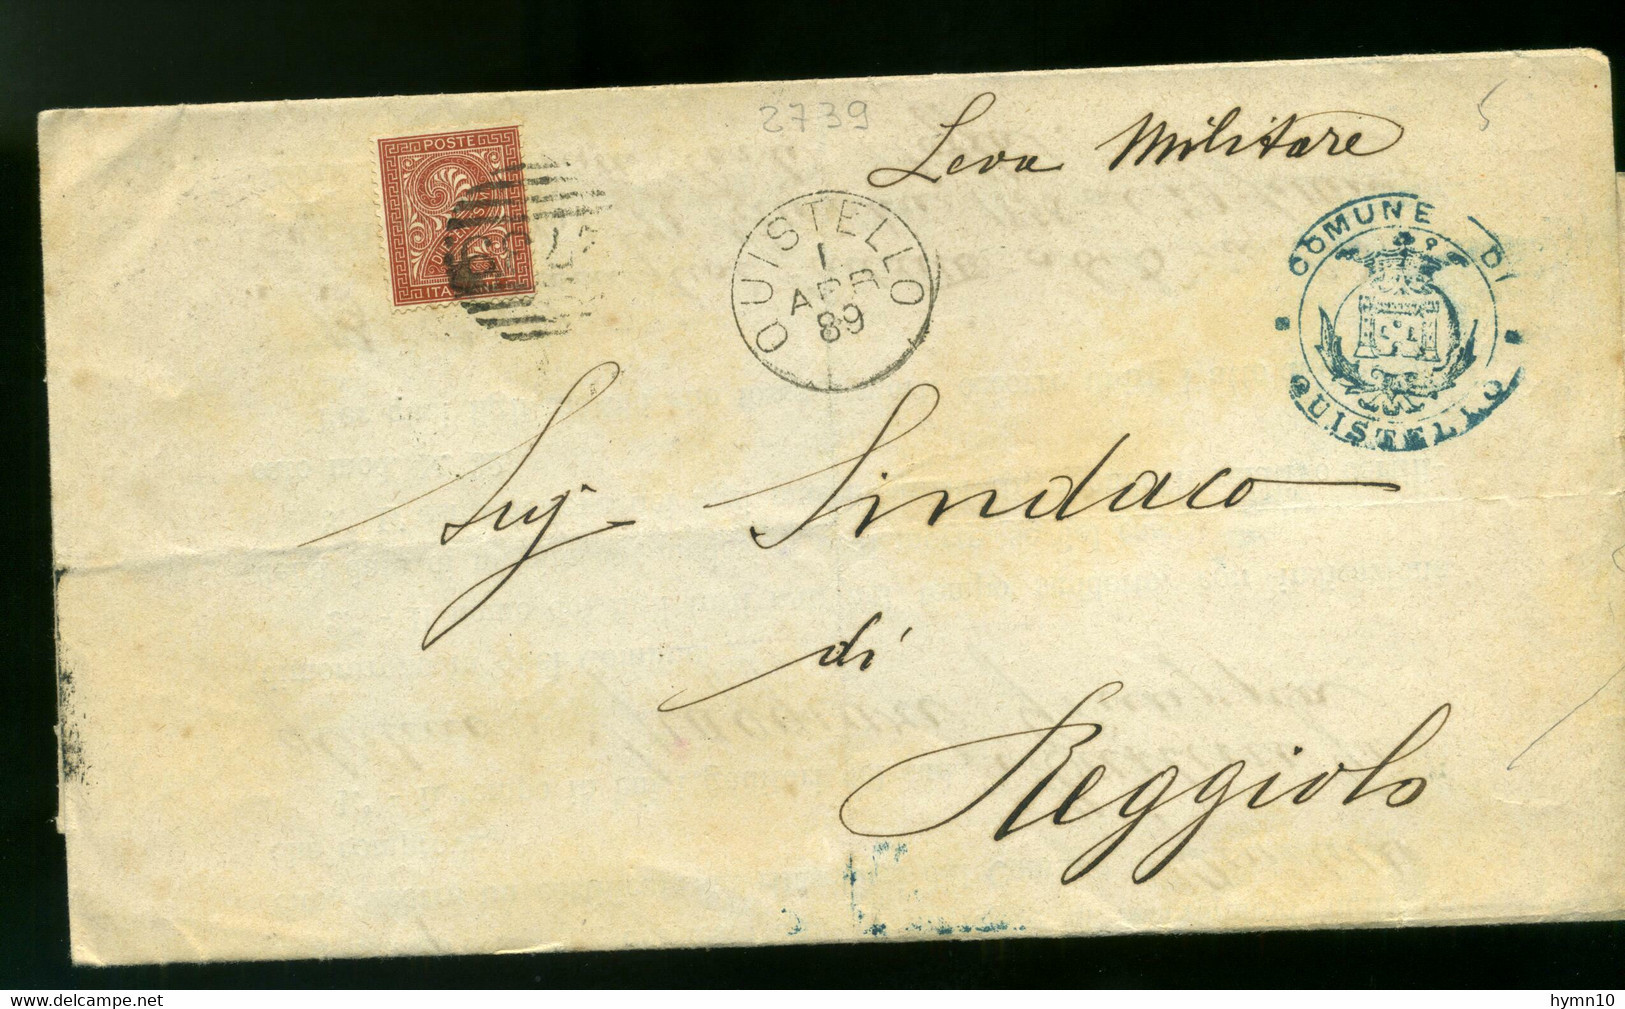 2739
5
Leva Militare
POSTE
ITALIANE
QUISTELLO
1
APR
89
COMUNE DI
QUISTELLO
Sigr Sindaco
di
Reggiolo
hymn10
www.delcampe.net